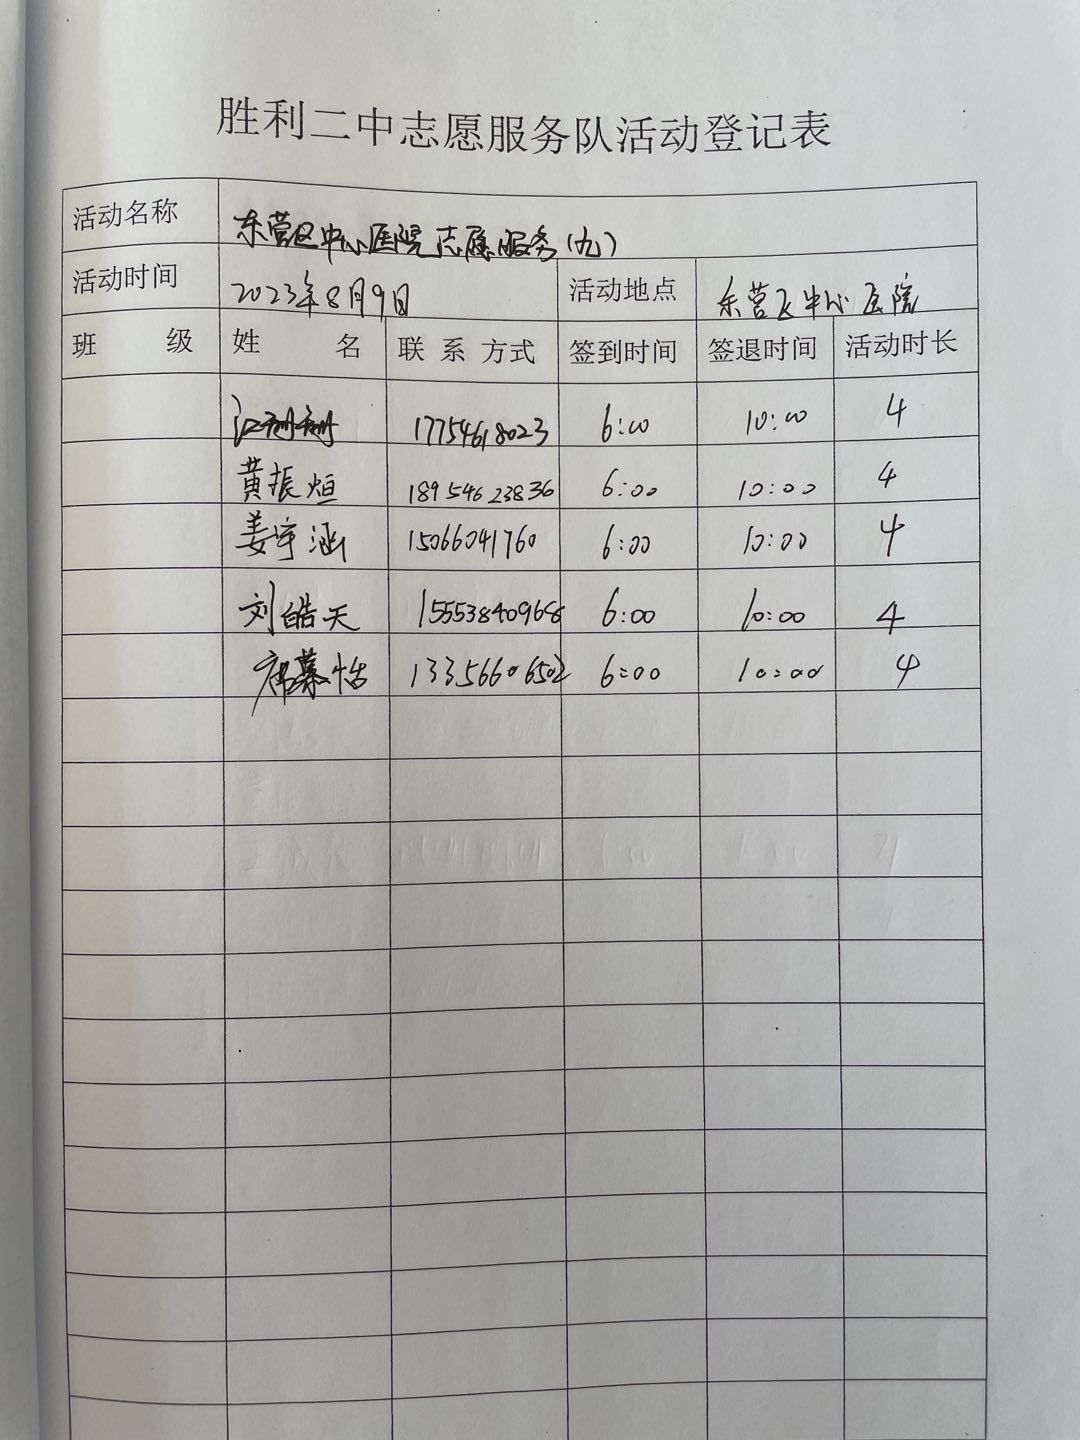 胜利二中志愿服务队活动登记表
活动名称 东营区中心医院志愿服务(九)
活动时间 2023年8月9日 活动地点 东营区中心医院
班 级 姓 名 联 系 方式 签到时间 签退时间 活动时长
江珊珊 17754618023 6:00 10:00 4
黄振烜 18954623836 6:00 10:00 4
姜宇涵 15066041760 6:00 10:00 4
刘皓天 15553840968 6:00 10:00 4
慕恬 13356606502 6:00 10:00 4